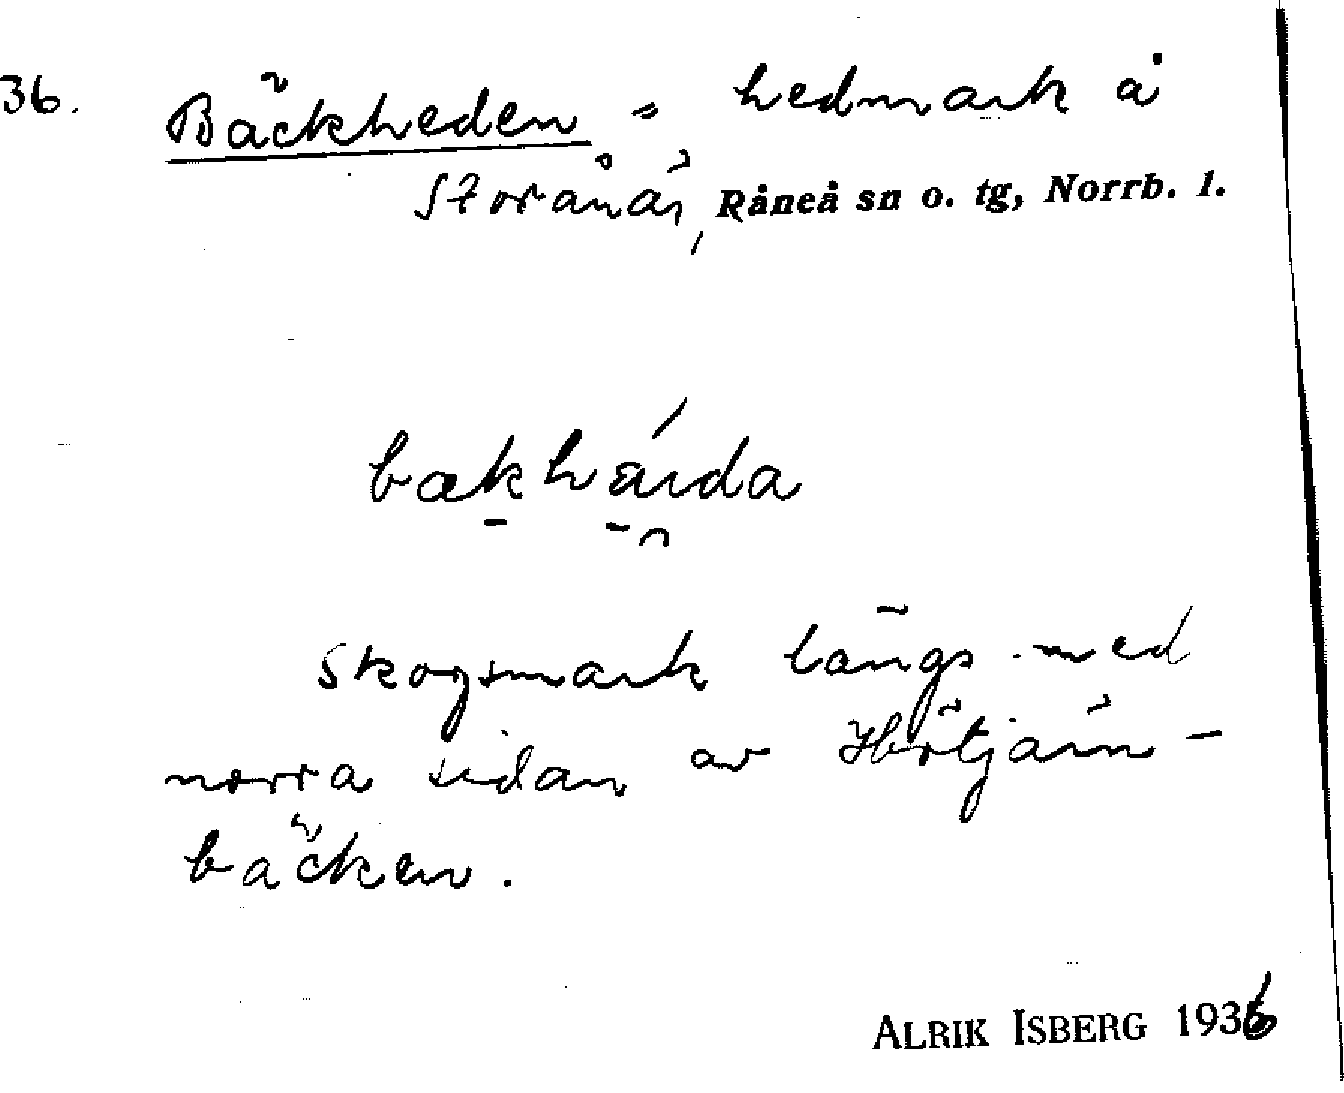 36.
Bäckheden = hedmark å
Storånäs, Råneå sn o. tg, Norrb. l.
skogsmark längs med
norra sidan av Hötjärn-
bäcken.
ALRIK ISBERG 1936